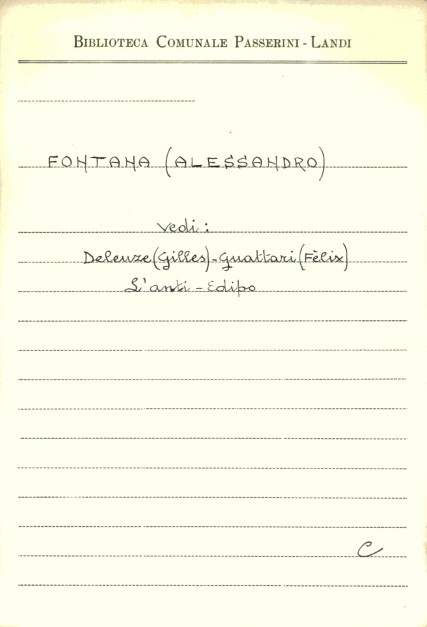 BIBLIOTECA COMUNALE PASSERINI - LANDI
FONTANA (ALESSANDRO)
vedi :
Deleuze (Gilles) - Guattari (Fèlix)
L'anti - Edipo
C